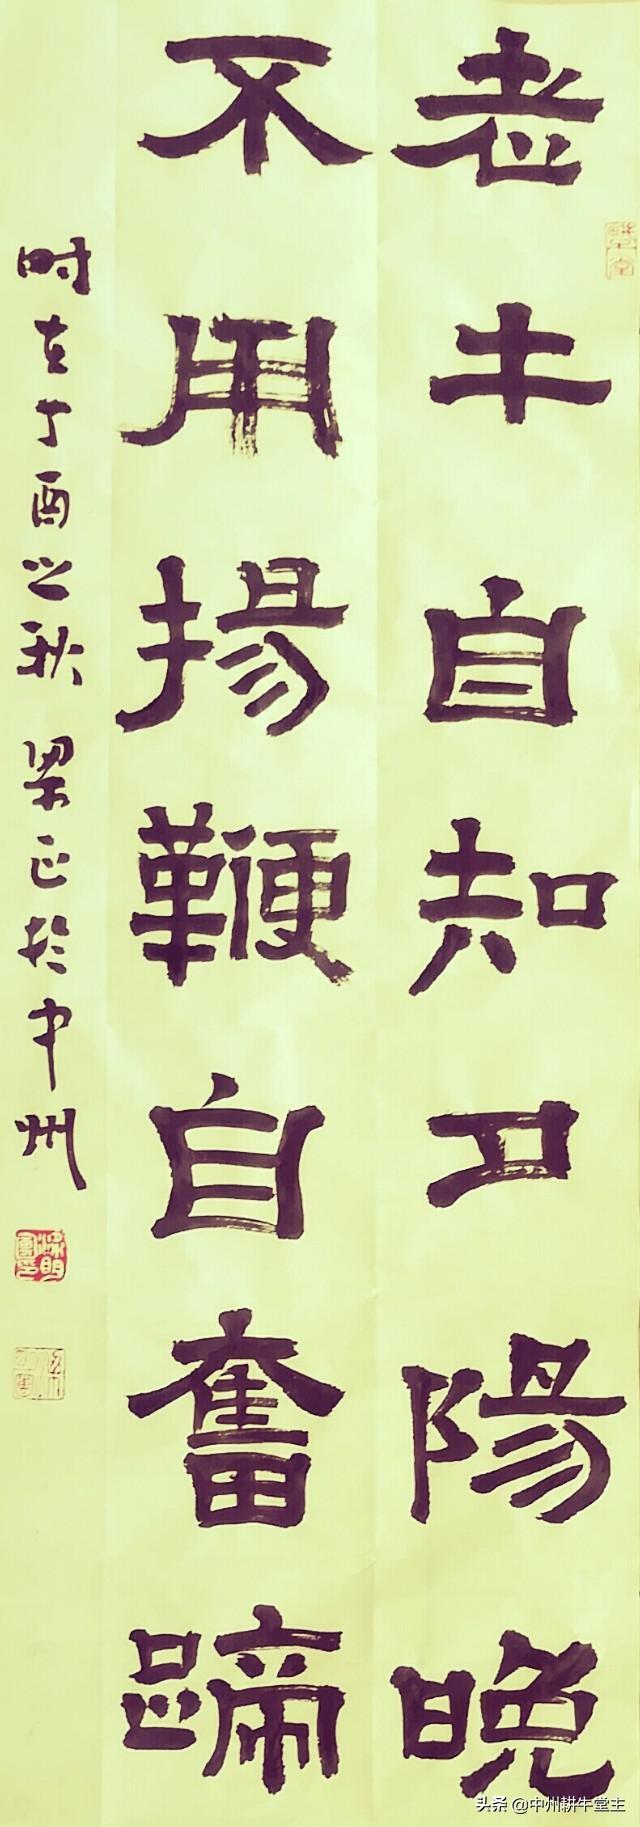 老牛自知夕陽晚
不用揚鞭自奮蹄
时在丁酉之秋 梁正於中州
头条 @中州耕牛堂主